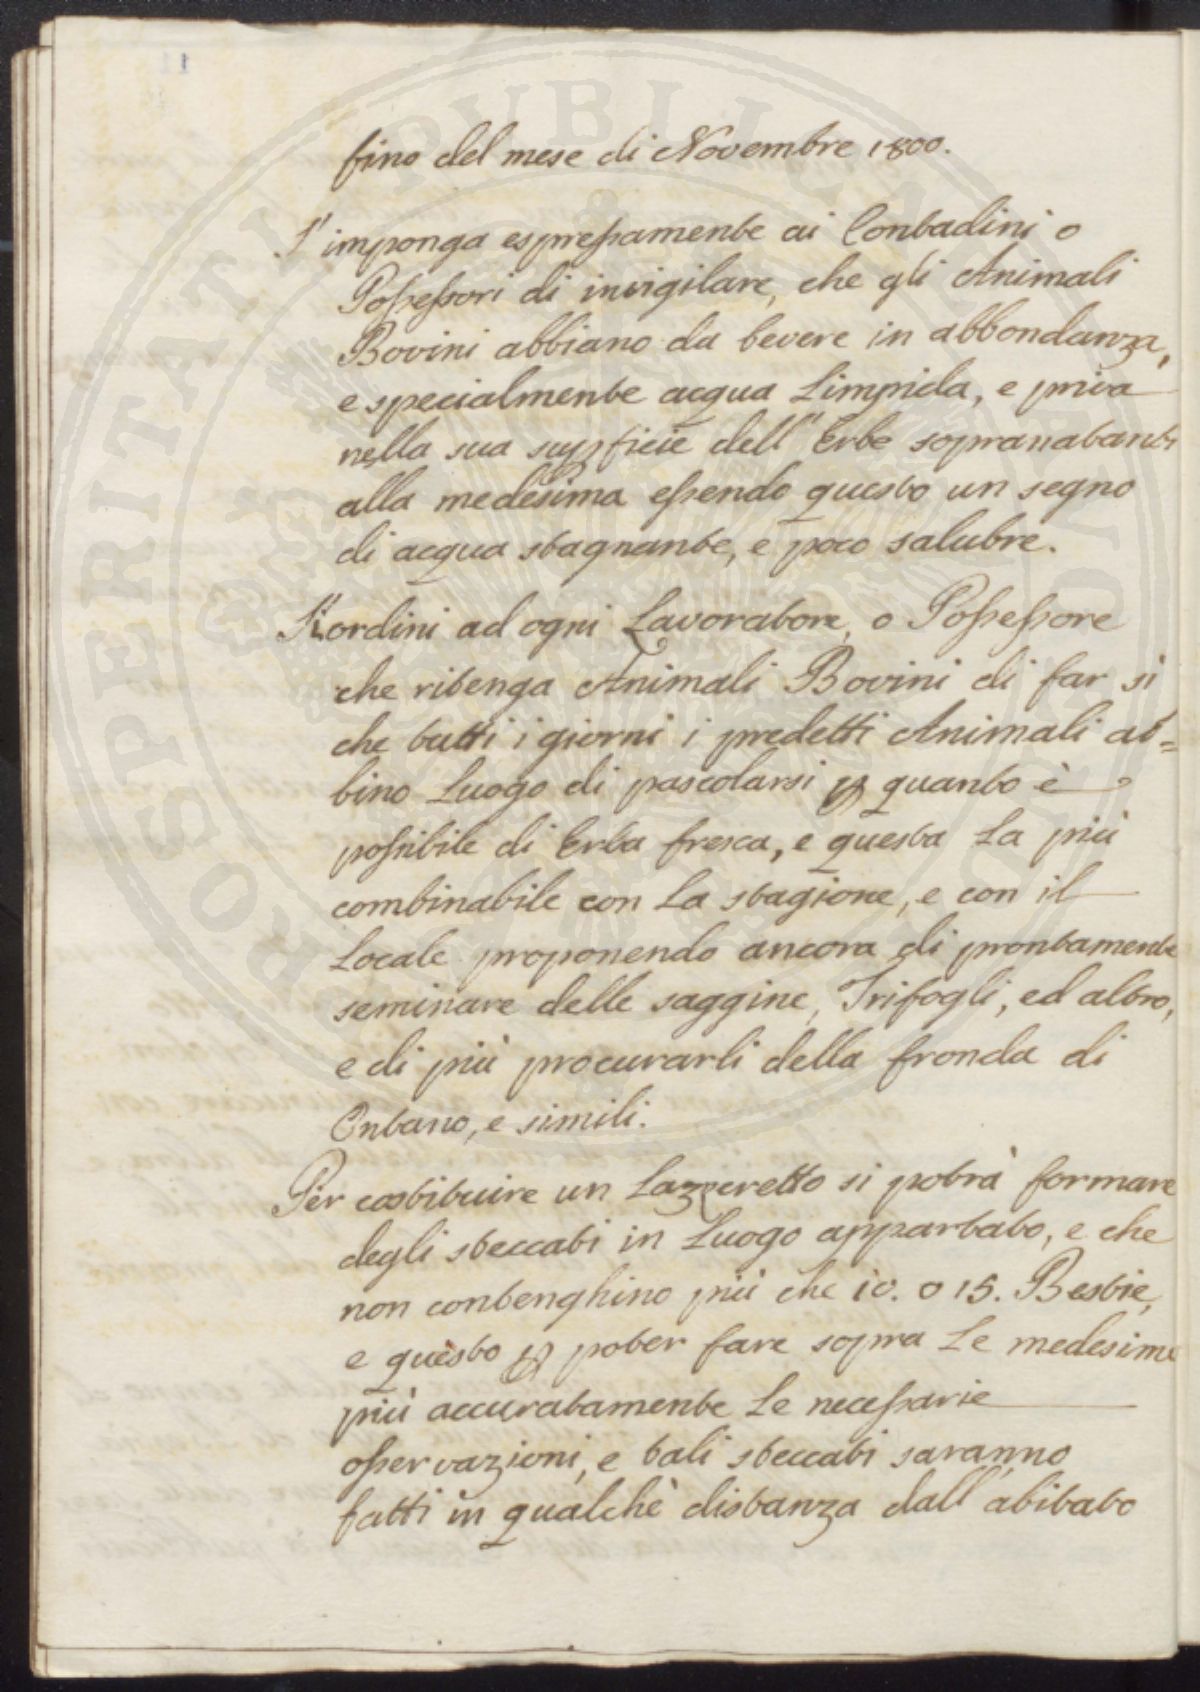 fino del mese di Novembre 1800.
S'imponga espressamente ai Contadini o
Possessori di invigilare, che gli Animali
Bovini abbiano da bevere in abbondanza,
e specialmente acqua Limpida, e priva
nella sua supficie dell'Erbe sopranatanti
alla medesima essendo questo un segno
di acqua stagnante, e poco salubre.
S'ordini ad ogni Lavoratore, o Possessore
che ritenga Animali Bovini di far sì
che tutti i giorni i predetti Animali ab=
bino Luogo di pascolarsi p quanto è
possibile di Erba fresca, e questa La più
combinabile con La stagione, e con il
Locale proponendo ancora di prontamente
seminare delle saggine, Trifogli, ed altro,
e di più procurarli della fronda di
Ontano, e simili.
Per costituire un Lazzeretto si potrà formare
degli steccati in Luogo appartato, e che
non contenghino più che 10. o 15. Bestie,
e questo p poter fare sopra Le medesime
più accuratamente Le necessarie
osservazioni, e tali steccati saranno
fatti in qualche distanza dall'abitato
PROSPERITATI PUBLICAE